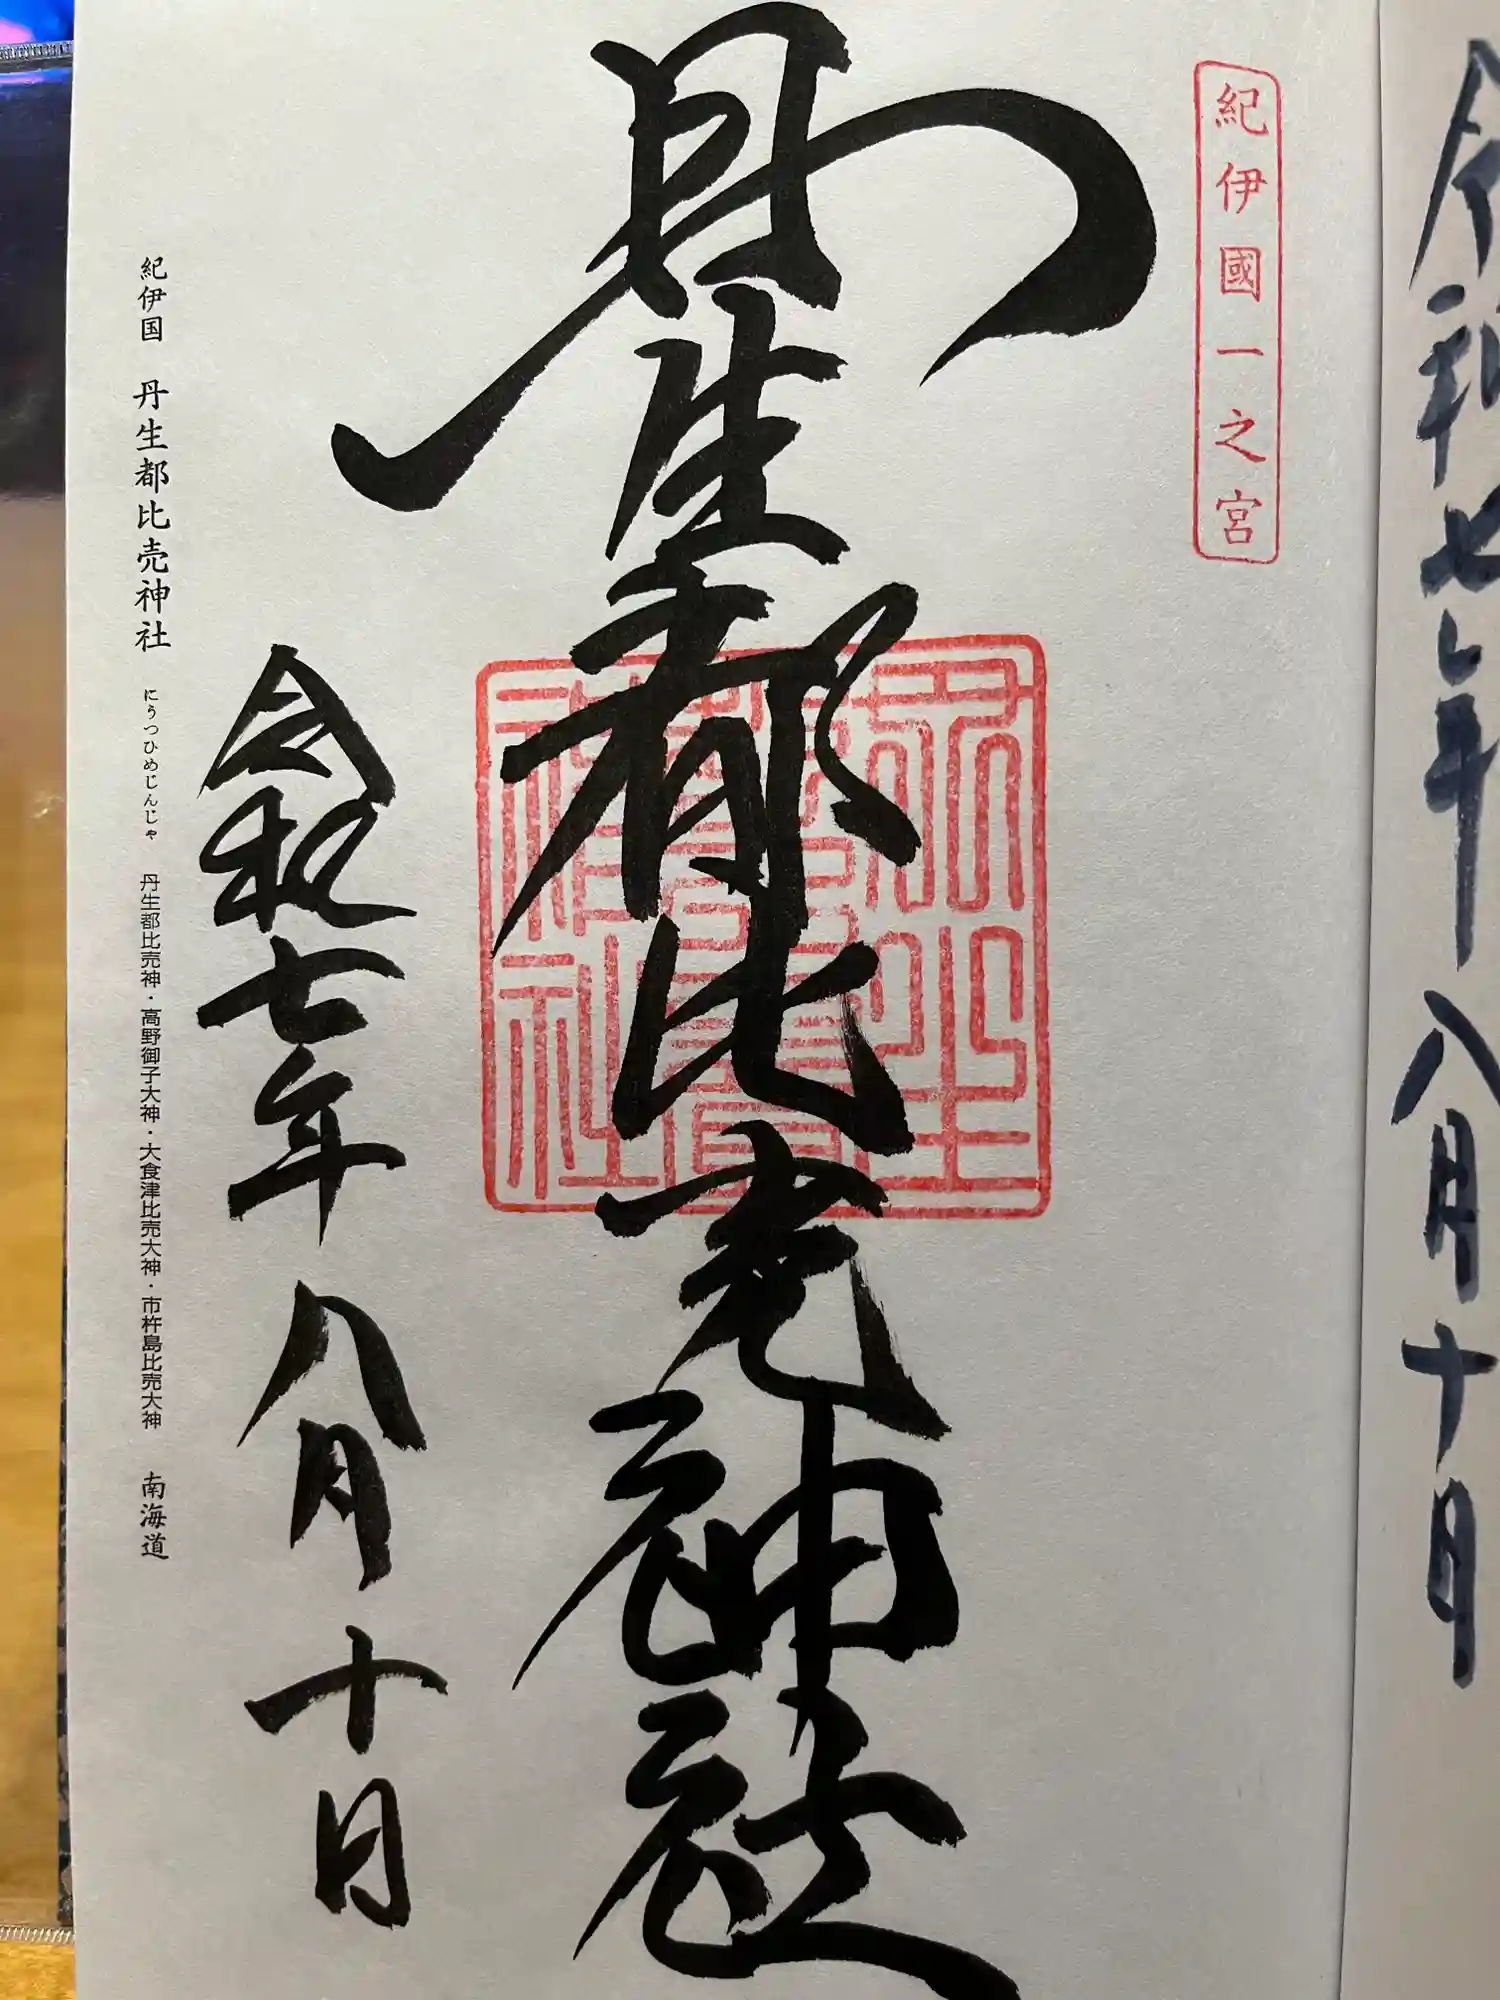 令和七年八月十日
紀伊國一之宮
丹生都比売神社
令和七年八月十日
紀伊国 丹生都比売神社 にうつひめじんじゃ 丹生都比売神・高野御子大神・大食津比売大神・市杵島比売大神 南海道